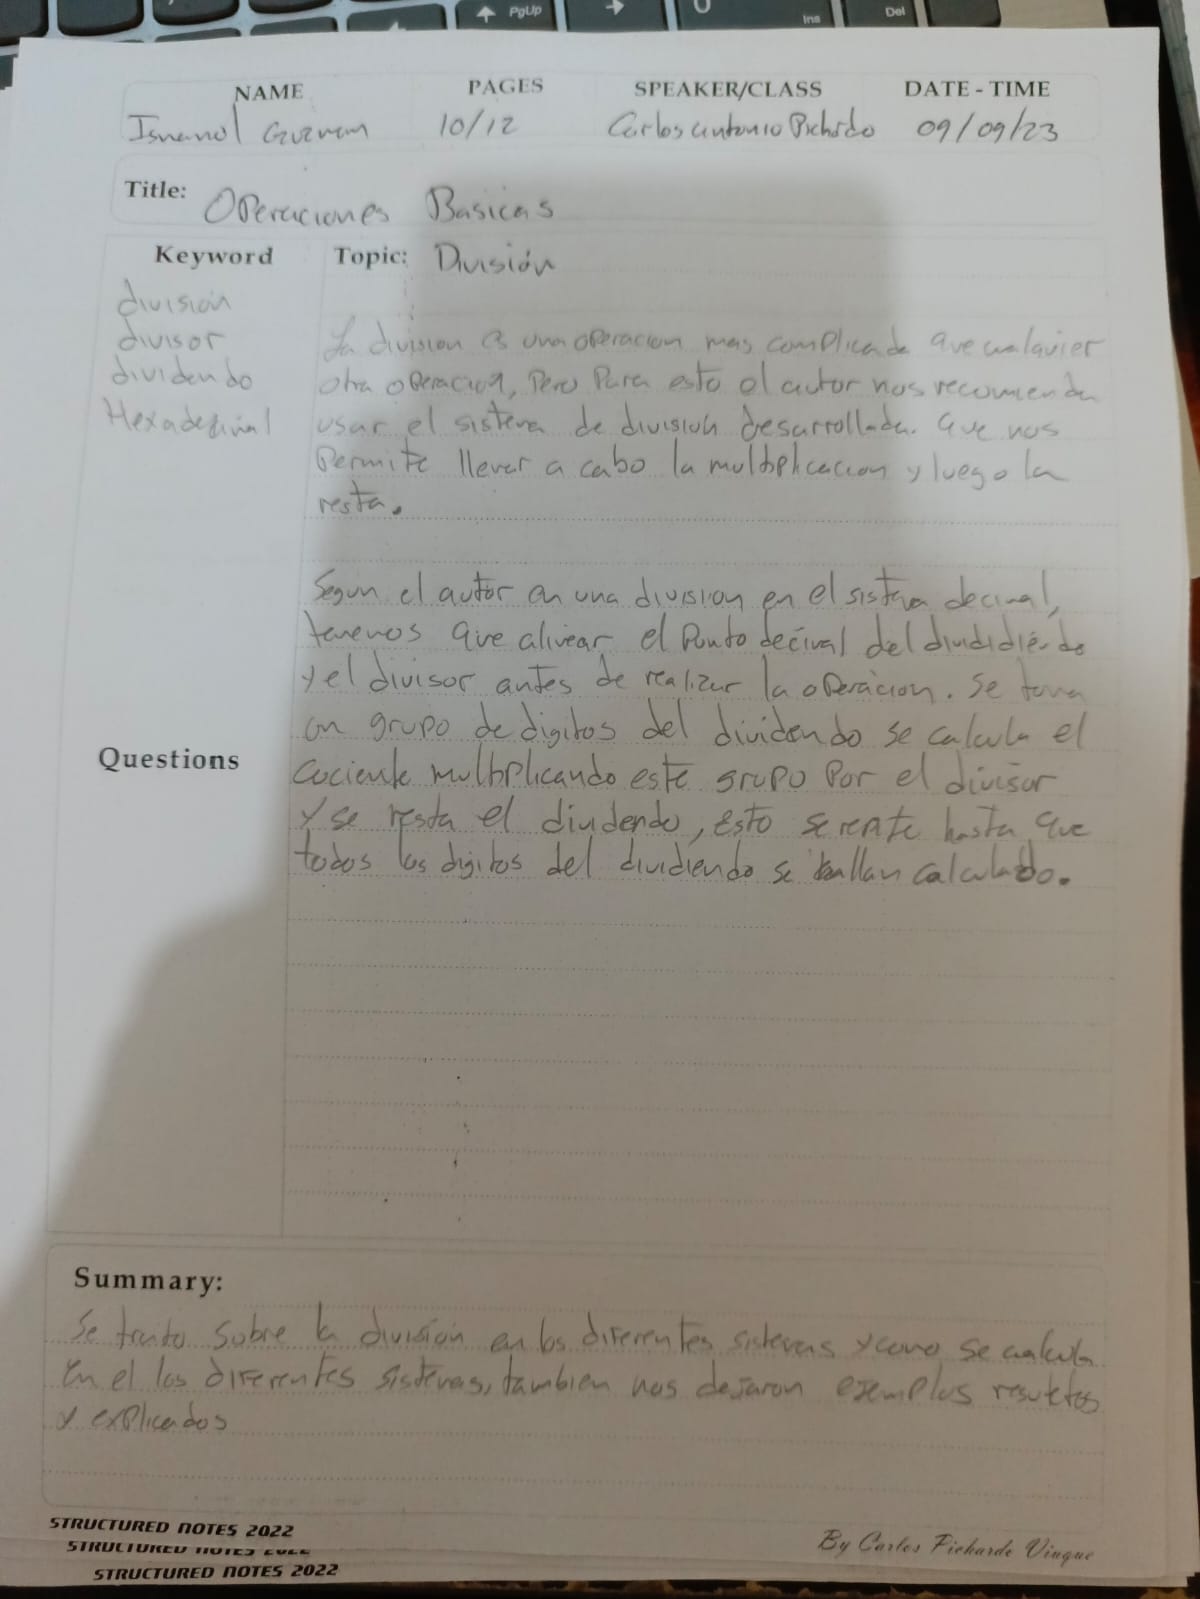 PgUp
Ins
Del
NAME PAGES SPEAKER/CLASS DATE - TIME
Ismanol Guzman 10/12 Carlos Antonio Pichardo 09/09/23
Title: Operaciones Basicas
Keyword Topic: División
división
divisor
dividendo
Hexadecimal
La division es una operacion mas complicada que cualquier
otra operacion, Pero Para esto el autor nos recomienda
usar el sistema de division desarrollada. Que nos
Permite llevar a cabo la multiplicacion y luego la
resta.
Segun el autor en una division en el sistema decimal,
tenemos que alinear el Punto decimal del
y el divisor antes de realizar la operacion. Se toma
un grupo de digitos del dividendo se calcula el
Cociente multiplicando este grupo Por el divisor
Y se resta el dividendo, Esto se repite hasta que
todos los digitos del dividiendo se calculado.
Questions
Summary:
Se trato sobre la división en los diferentes sistemas y como se calcula
En el los diferentes sistemas, tambien nos dejaron ejemplos resueltos
y explicados
STRUCTURED NOTES 2022
By Carlos Pichardo Viuque
STRUCTURED NOTES 2022
STRUCTURED NOTES 2022